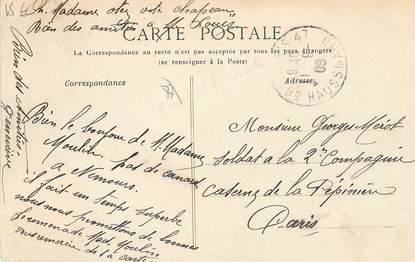 Madame otez votre chapeau
Bien des amitiés à M. Louis
CARTE POSTALE
La Correspondance au recto n'est pas acceptée par tous les pays étrangers
(se renseigner à la Poste)
Correspondance
Adresse
HAUSSMANN
Bien des amitiés
Geneviève
Bien le bonjour de M. Madame
Moulin pas de canard
a Nemours.
il fait un temps superbe
nous nous promettons de bonnes
promenade Mad. Moulin
vous remercie de la carte
Monsieur Georges Mérot
Soldat a la 2e Compagnie
Caserne de la Pépinièr
Paris